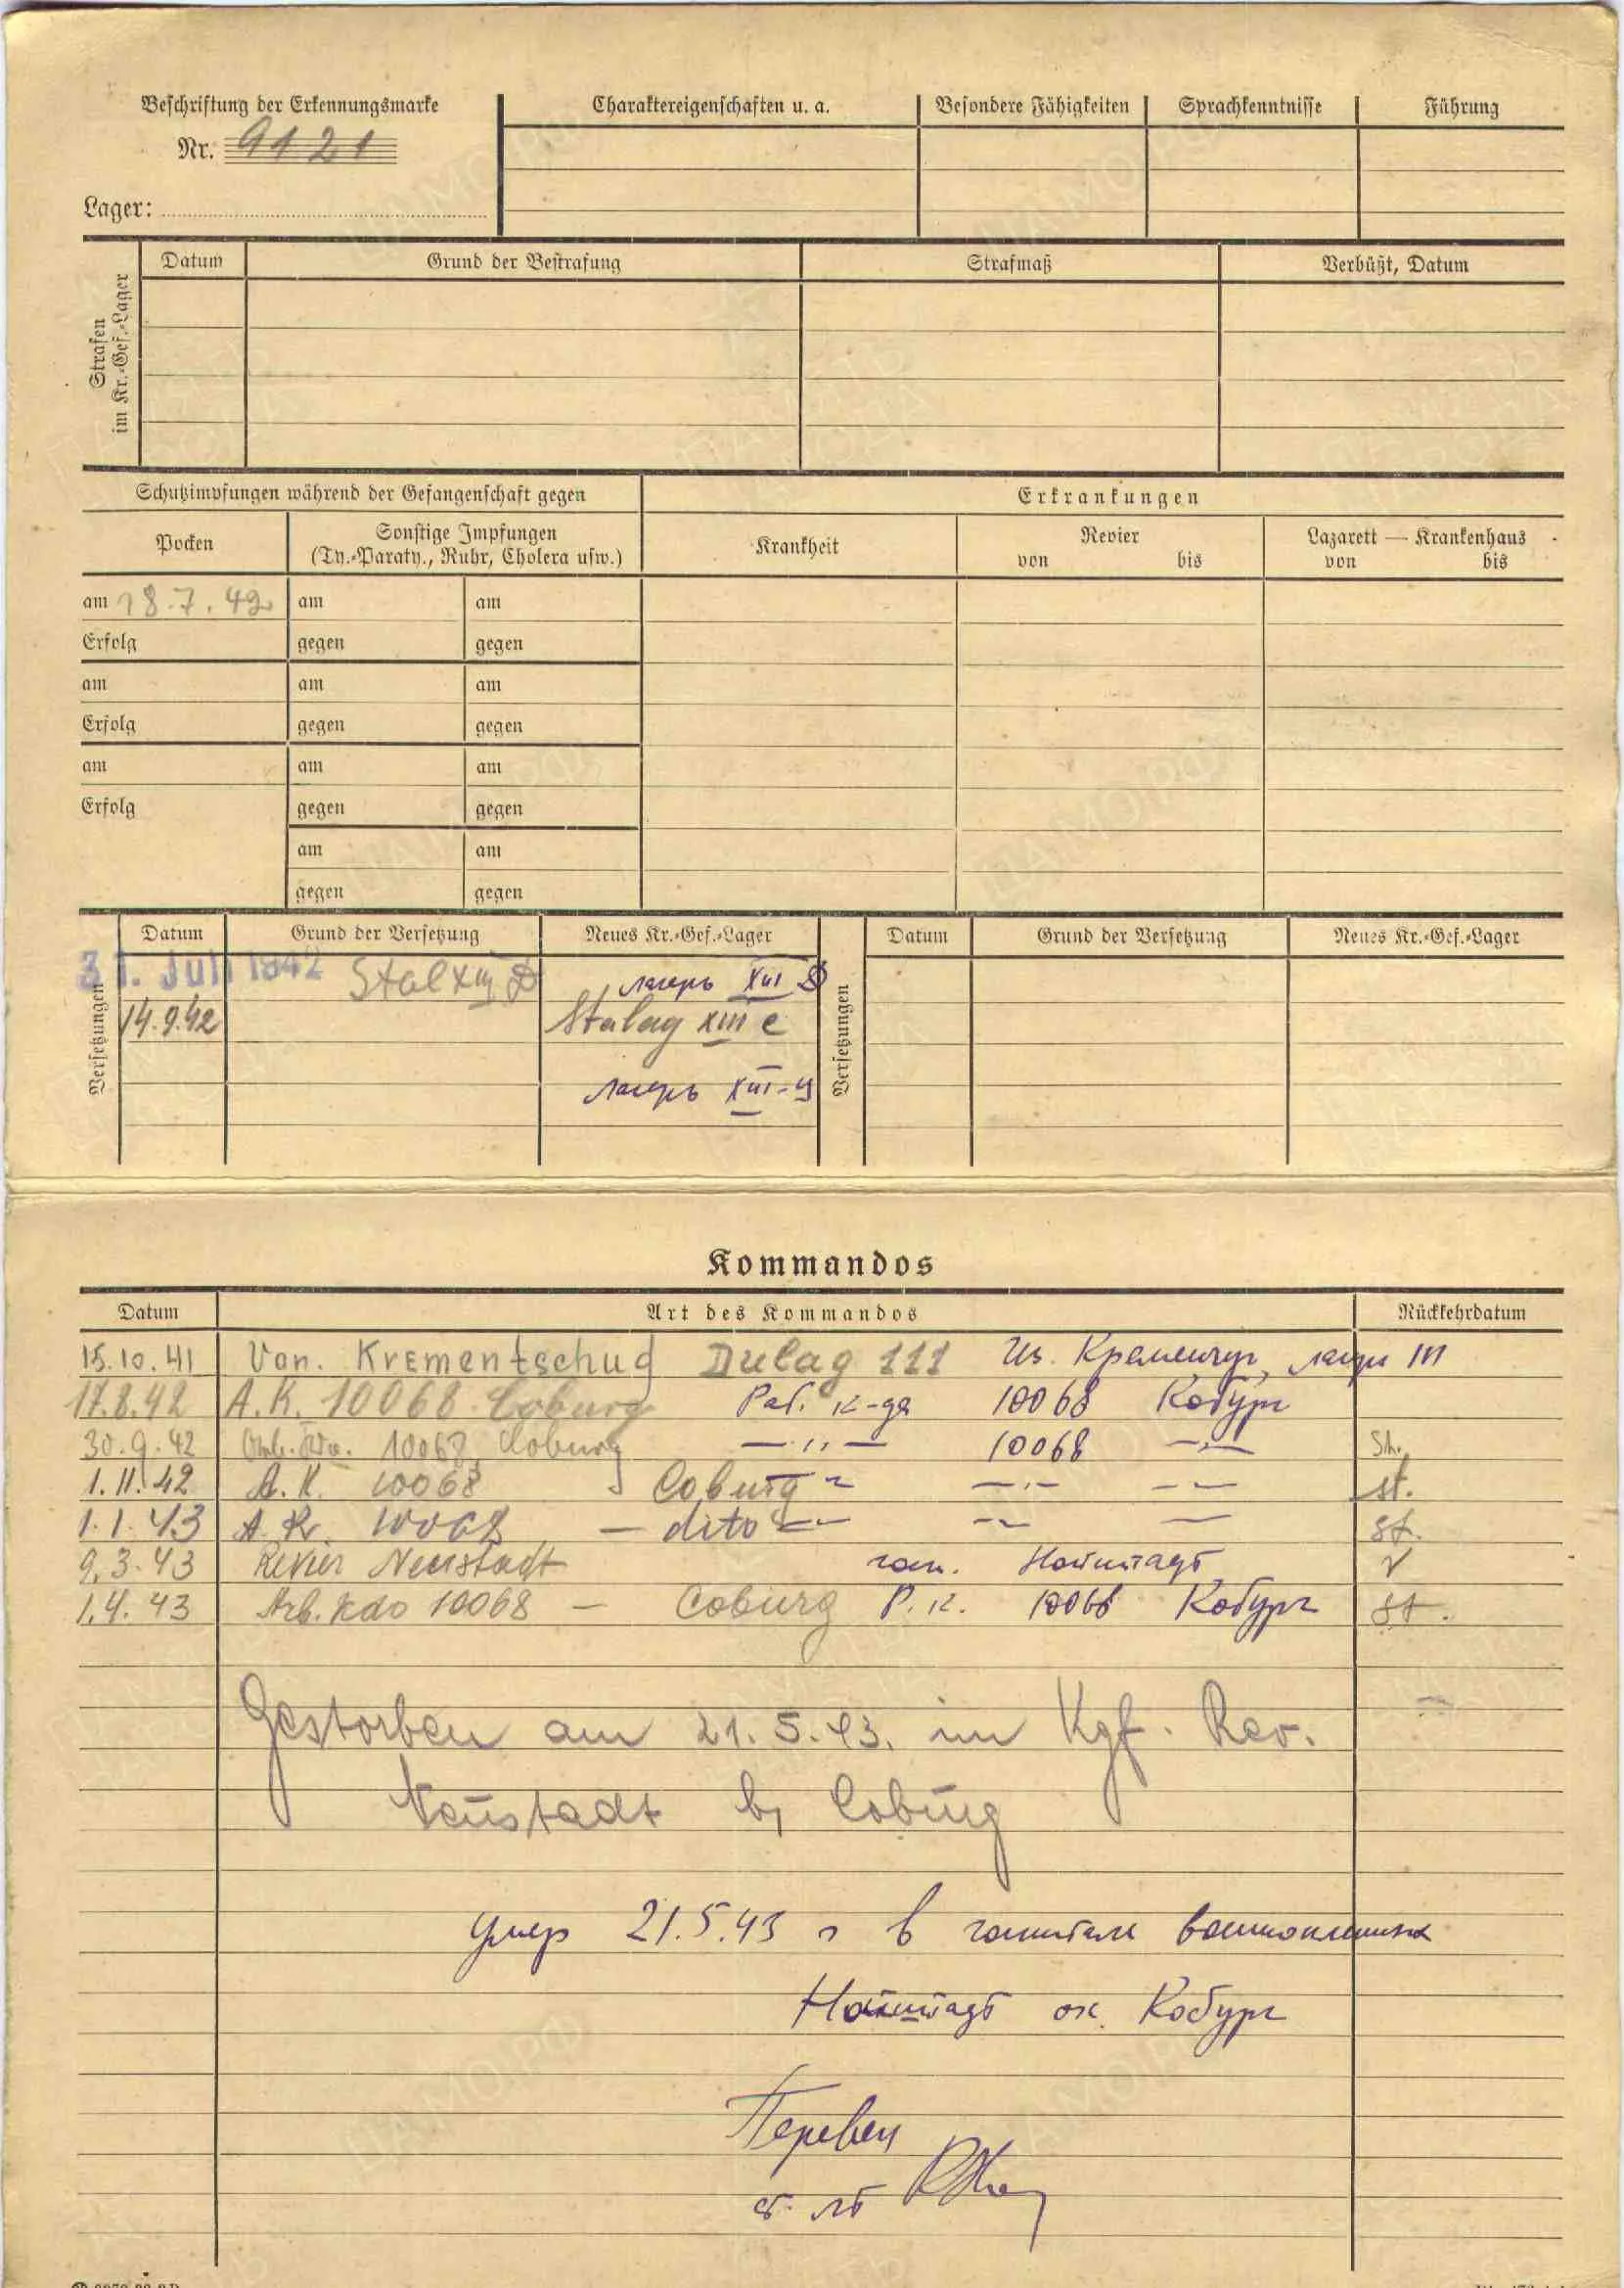 Beschriftung der Erkennungsmarke
Nr. 9121
Lager:
Charaktereigenschaften u. a. Besondere Fähigkeiten Sprachkenntnisse Führung
Strafen im Kr.-Gef.-Lager
Datum Grund der Bestrafung Strafmaß Verbüßt, Datum
Schutzimpfungen während der Gefangenschaft gegen
Pocken
Sonstige Impfungen
(Ty.-Paraty., Ruhr, Cholera usw.)
Erkrankungen
Krankheit
Revier
von bis
Lazarett — Krankenhaus
von bis
am 18.7.42 am am
Erfolg gegen gegen
am am am
Erfolg gegen gegen
am am am
Erfolg gegen gegen
am am
gegen gegen
Versetzungen
Datum Grund der Versetzung Neues Kr.-Gef.-Lager
31. Juli 1942 Stal XIII D лагерь XIII D
14.9.42 Stalag XIII C
лагерь XIII-Ц
Versetzungen
Datum Grund der Versetzung Neues Kr.-Gef.-Lager
Kommandos
Datum Art des Kommandos Rückkehrdatum
15.10.41 Von. Krementschug Dulag 111 Из. Кременчуг, лагерь 111
17.8.42 A.K. 10068 Coburg Раб. к-да 10068 Кобург
30.9.42 10068 Coburg — „ — 10068 — „ —
1.11.42 A.K. 10068 Coburg st.
1.1.43 A.K. 10068 — dito — st.
9.3.43 Revier Neustadt гос. Нойштадт
1.4.43 Arb. Kdo 10068 — Coburg Р.к. 10068 Кобург st.
Gestorben am 21.5.43. im Kgf. Rev.
Neustadt b, Coburg
умер 21.5.43 г в госпитале военнопленных
Нойштадт ок. Кобург
Перевел
ст. лт